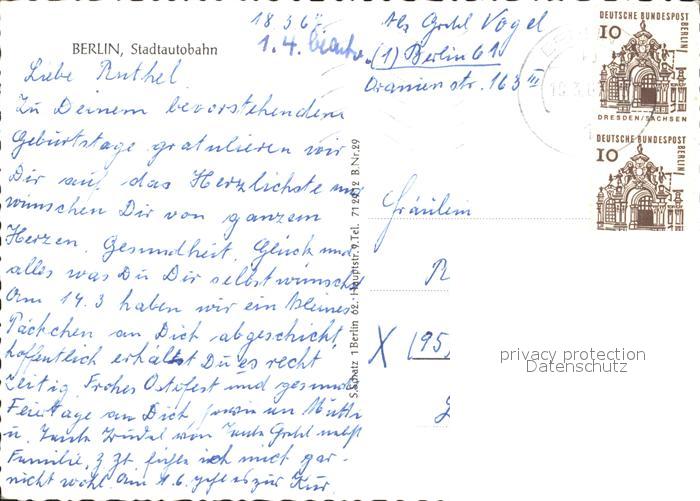 18 3 67
1. 4.
Abs Grohl Vogel
(1) Berlin 61
Oranienstr. 163 III
BERLIN, Stadtautobahn
Liebe Ruthel
Zu Deinem bevorstehenden
Geburtstage gratulieren wir
Dir auf das Herzlichste und
wünschen Dir von ganzem
Herzen. Gesundheit, Glück und
alles was Du Dir selbst wünscht
Am 14.3 haben wir ein kleines
Päckchen an Dich abgeschickt,
hoffentlich erhältst Du es recht
zeitig. Frohes Osterfest und gesunde
Feiertage an Dich, sowie an Mutti
u. Tante von Tante Grohl nebst
Familie, z. Zt. ich mich gar-
nicht wohl. Am 1.6. zur Kur
S. Schatz 1 Berlin 62. Hauptstr. 9. Tel. 71 29 12 B. Nr. 29
Fräulein
R
X (95
DEUTSCHE BUNDESPOST
BERLIN
10
DRESDEN/SACHSEN
DEUTSCHE BUNDESPOST
BERLIN
10
privacy protection
Datenschutz